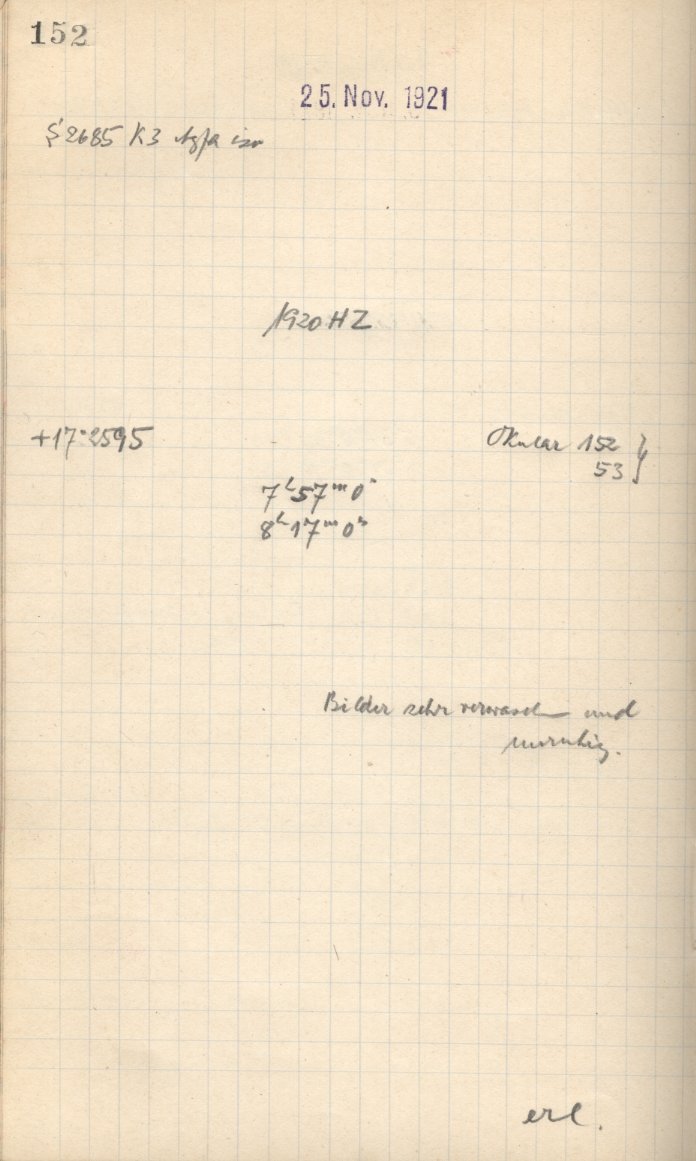 152
25. Nov. 1921
S 2685 K3 Agfa iso
1920 HZ
+17°2595
Okular 152 }
53
7h 57m 0s
8h 17m 0s
Bilder sehr verwaschen und
unruhig.
erl.